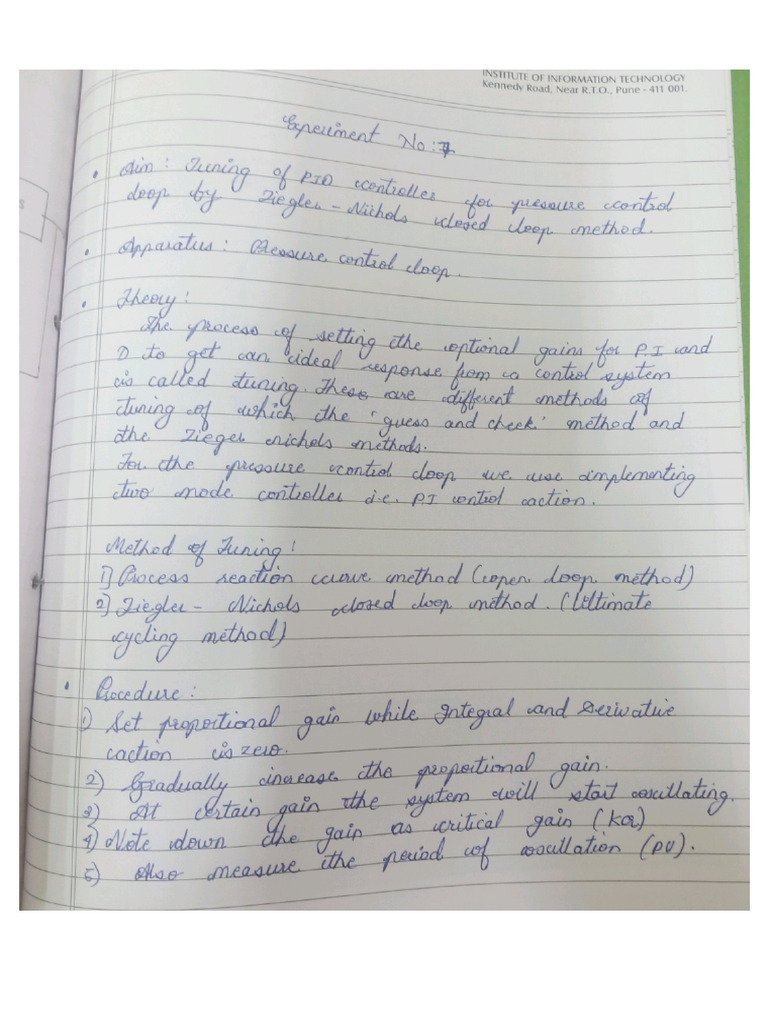 INSTITUTE OF INFORMATION TECHNOLOGY
Kennedy Road, Near R.T.O., Pune - 411 001.
Experiment No: 7
• Aim: Tuning of PID controller for pressure control
loop by Ziegler - Nichols closed loop method.
• Apparatus: Pressure control loop.
• Theory:
The process of setting the optional gains for P, I and
D to get an ideal response from a control system
is called tuning. These are different methods of
tuning of which the 'guess and check' method and
the Zieger nichols methods.
For the pressure control loop we use implementing
two mode controller i.e. PI control action.
Method of Tuning:
1] Process reaction curve method (open loop method)
2] Ziegler - Nichols closed loop method. (Ultimate
cycling method)
• Procedure:
1) Set proportional gain while Integral and Derivative
action is zero.
2) Gradually increase the proportional gain.
3) At certain gain the system will start oscillating.
4) Note down the gain as critical gain (Kcr)
5) Also measure the period of oscillation (PU).